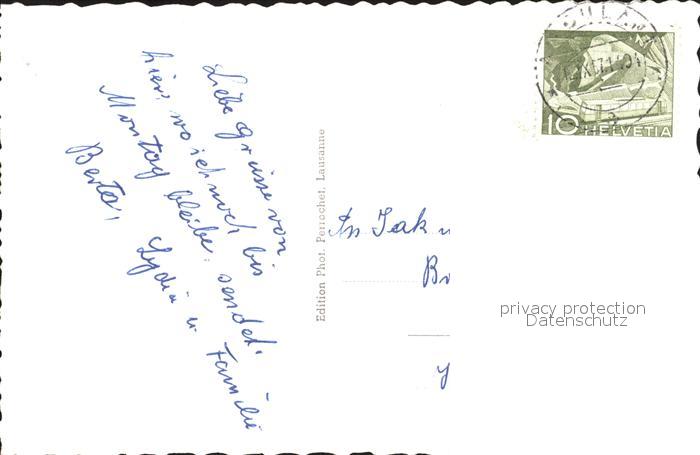 Liebe Grüsse von
hier, wo ich noch bis
Montag bleibe. sendet.
Berta, Lydia u Familie
Edition Phot. Perrochet, Lausanne
An Jak
10 HELVETIA
privacy protection
Datenschutz